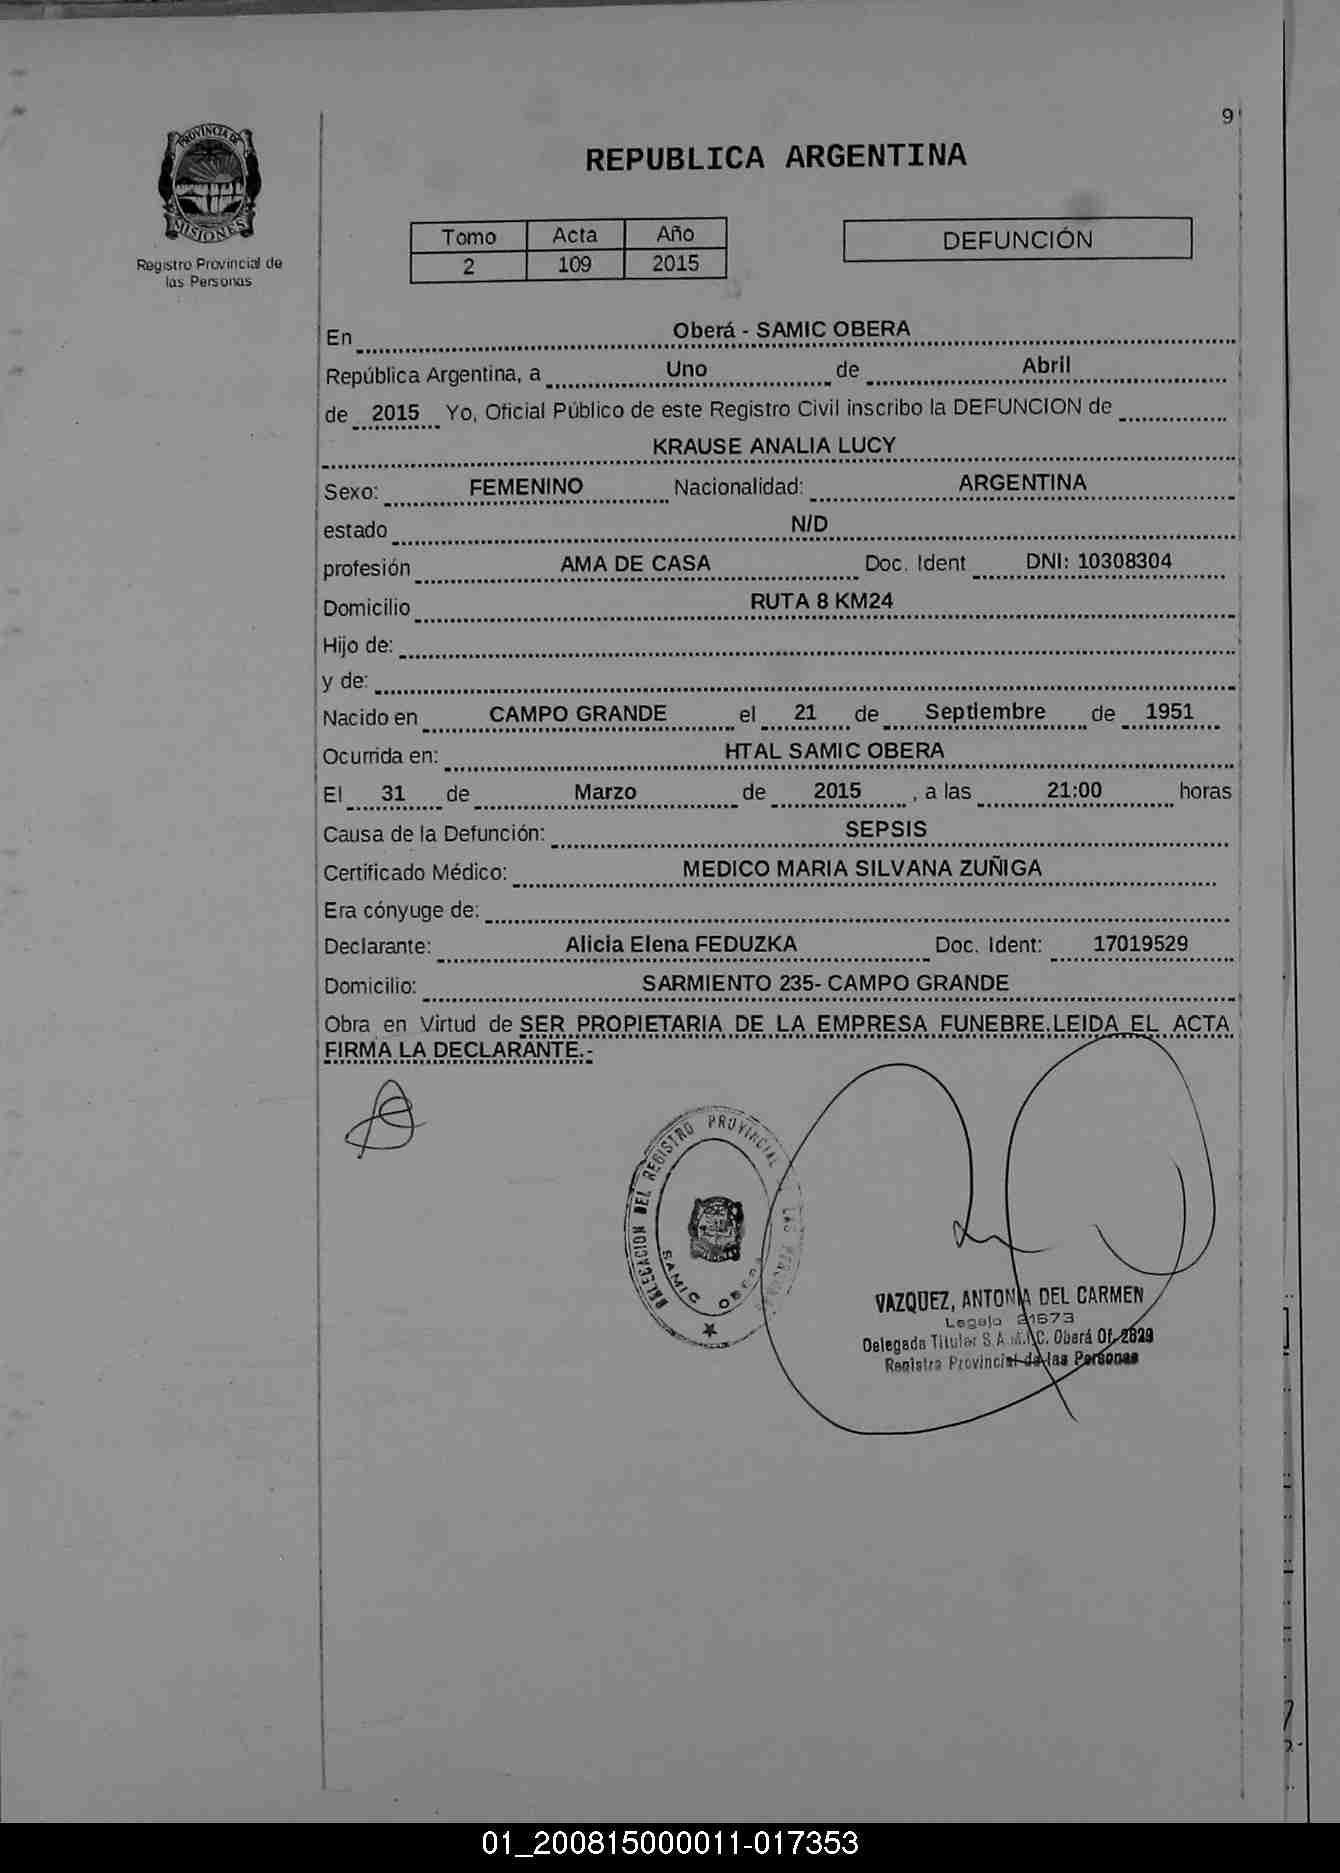 9
PROVINCIA DE
MISIONES
Registro Provincial de
las Personas
REPUBLICA ARGENTINA
Tomo Acta Año
2 109 2015
DEFUNCIÓN
En Oberá - SAMIC OBERA
República Argentina, a Uno de Abril
de 2015 Yo, Oficial Público de este Registro Civil inscribo la DEFUNCION de
KRAUSE ANALIA LUCY
Sexo: FEMENINO Nacionalidad: ARGENTINA
estado N/D
profesión AMA DE CASA Doc. Ident DNI: 10308304
Domicilio RUTA 8 KM24
Hijo de:
y de:
Nacido en CAMPO GRANDE el 21 de Septiembre de 1951
Ocurrida en: HTAL SAMIC OBERA
El 31 de Marzo de 2015 , a las 21:00 horas
Causa de la Defunción: SEPSIS
Certificado Médico: MEDICO MARIA SILVANA ZUÑIGA
Era cónyuge de:
Declarante: Alicia Elena FEDUZKA Doc. Ident: 17019529
Domicilio: SARMIENTO 235- CAMPO GRANDE
Obra en Virtud de SER PROPIETARIA DE LA EMPRESA FUNEBRE.LEIDA EL ACTA
FIRMA LA DECLARANTE.-
DELEGACION DEL REGISTRO PROVINCIAL LAS PERSONAS
SAMIC OBERA
VAZQUEZ, ANTONIA DEL CARMEN
Legajo 21673
Delegada Titular S.A.M.I.C. Oberá Of. 2629
Registro Provincial de las Personas
01_200815000011-017353